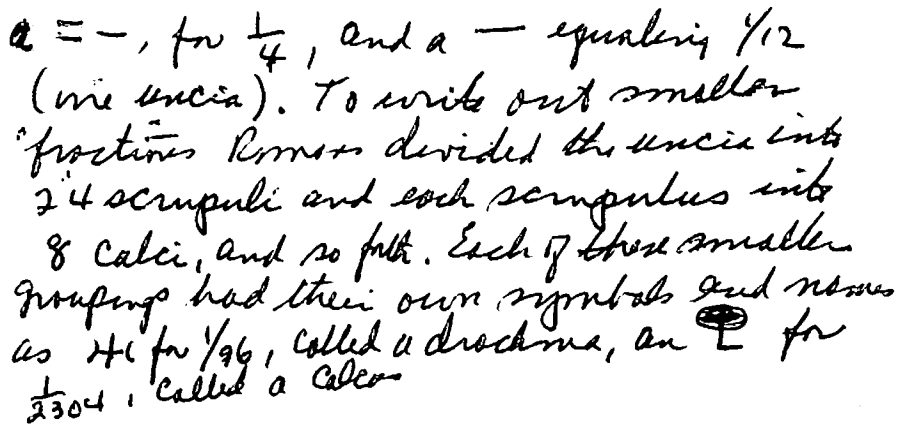 a = –, for 1/4, and a — equaling 1/12
(one uncia). To write out smaller
fractions Romans divided the uncia into
24 scrupuli and each scrupulus into
8 calci, and so forth. Each of these smaller
groupings had their own symbols and names
as for 1/96, called a drachma, an for
1/2304, called a calcus